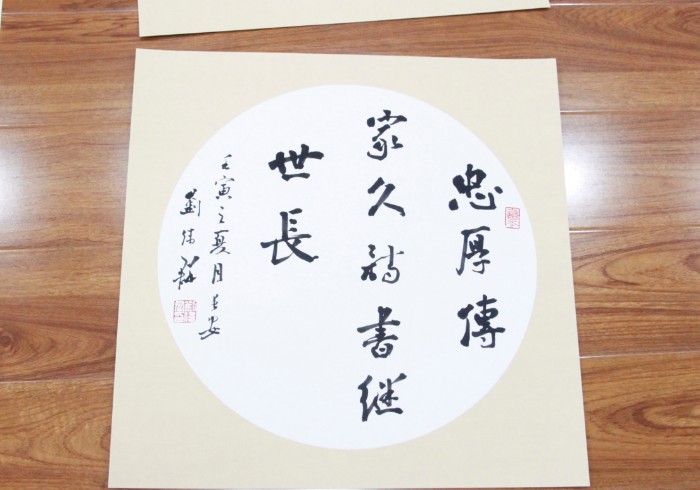 忠厚傳
家久詩書継
世長
壬寅之夏月長安
劉